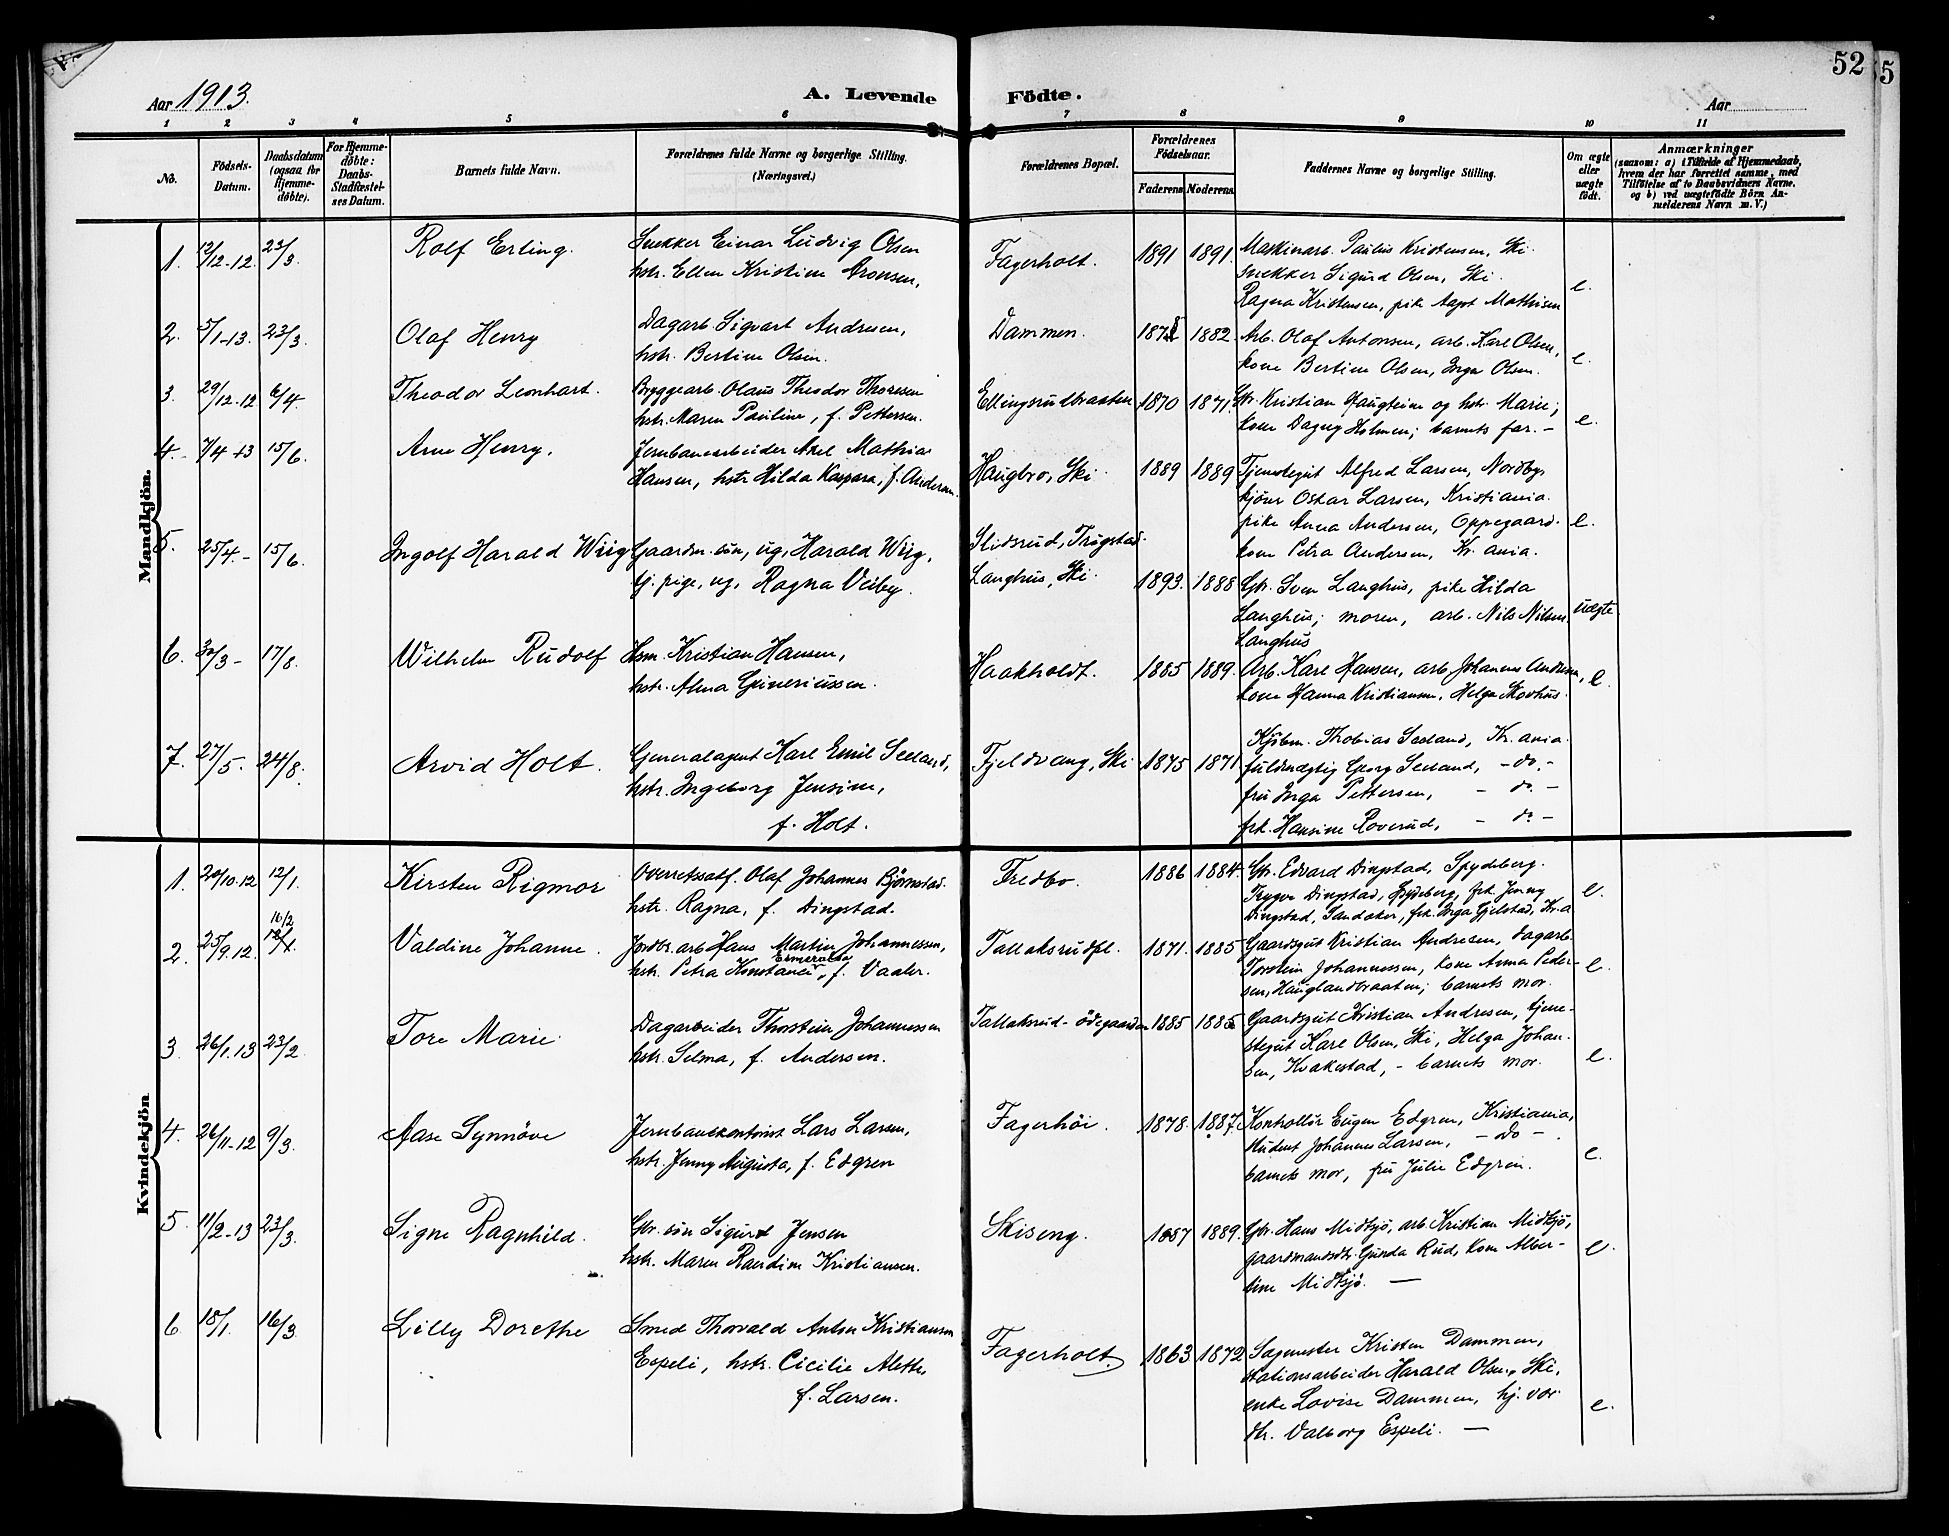 52
5
Aar 1913.
A. Levende Födte.
Aar
1 2 3 4 5 6 7 8 9 10 11
No.
Födsels-
Datum.
Daabsdatum
(ogsaa for
Hjemme-
døbte).
For Hjemme-
døbte:
Daabs-
Stadfæstel-
ses Datum.
Barnets fulde Navn.
Forældrenes fulde Navne og borgerlige Stilling.
(Næringsvei.)
Forældrenes Bopæl.
Forældrenes
Födselsaar.
Faderens Moderens
Faddernes Navne og borgerlige Stilling.
Om ægte
eller
uægte
födt.
Anmærkninger
(saasom: a) i Tilfælde af Hjemmedaab,
hvem der har forrettet samme, med
Tilföielse af to Daabsvidners Navne,
og b) ved uægtefödte Börn An-
melderens Navn m. V.)
Mandkjön.
1. 12/12-12. 23/3. Rolf Erling.
Snekker Einar Ludvig Olsen
hstr. Ellen Kristine Aronsen,
Fagerholt. 1891 1891.
Maskinarb. Paulus Kristensen, Ski.
snekker Sigurd Olsen, Ski.
Ragna Kristensen, pike Aagot Mathisen
e.
2. 5/1-13. 23/3. Olaf Henry
Dagarb. Sigvart Andresen,
hstr. Bertine Olsen.
Dammen. 1882.
Arb. Olaf Antonsen, arb. Karl Olsen,
kone Bertine Olsen, Inga Olsen.
e.
3. 29/12-12 6/4. Theodor Leonhart.
Bryggearb. Olaus Theodor Thoresen
hstr. Maren Pauline, f. Pettersen.
Ellingsrudbraaten 1870 1871.
Gbr. Kristian Haugtein og hstr. Marie;
kone Dagny Holmen; barnets far. -
e.
4. 7/4 13 15/6. Arne Henry.
Jernbanearbeider Axel Mathias
Hansen, hstr. Hilda Kaspara, f. Andersen.
Haugbro, Ski. 1889 1889
Tjenestegut Alfred Larsen, Nordby,
kjörer Oskar Larsen, Kristiania.
pike Anna Andersen, Oppegaard.
kone Petra Andersen, Kr.ania.
e.
5. 25/4.- 15/6. Ingolf Harald Wiig
Gaardm. sön, ug, Harald Wiig,
tj. pige, ug, Ragna Veiby.
Slidsrud, Trögstad.
Langhus, Ski. 1893. 1888
Gbr. Sven Langhus, pike Hilda
Langhus; moren, arb. Nils Nilsen
Langhus
uægte.
6. 30/3- 17/8. Wilhelm Rudolf
Hsm. Kristian Hansen,
hstr. Alma Grineriussen.
Haakholdt. 1885 1889.
Arb. Karl Hansen, arb. Johannes Andersen,
kone Hanna Kristiansen, Helga Skovhus.
e.
7. 27/5. 24/8. Arvid Holt.
Generalagent Karl Emil Seeland,
hstr. Ingeborg Jensine,
f. Holt.
Fjeldvang, Ski 1875 1871
Kjöbm. Thobias Seeland, Kr.ania.
fuldmægtig Georg Seeland, -do.-
fru Inga Pettersen, - do. -
frk. Hansine Roverud, - do -
Kvindekjön
1. 20/10.12 12/1. Kirsten Rigmor
Overretssakf. Olaf Johannes Björnstad.
hstr. Ragna, f. Dingstad.
Fredbo. 1886 1884.
Gbr. Edvard Dingstad, Spydeberg.
Trygve Dingstad, Spydeberg, frk. Jenny
Dingstad, Sandaker, frk. Inga Gjelstad, Kr.a
e.
2. 25/9.12. 16/2 Valdine Johanne.
Jordbr. arb Hans Martin Johannessen,
hstr. Petra Konstance Esmeralda, f. Vaaler.
Tallaksrudpl. 1871. 1885
Gaardsgut Kristian Andresen, dagarb.
Torstein Johannessen, kone Anna Peder-
sen, Hauglandbraaten; barnets mor.
e.
3. 26/1.13 23/2. Tore Marie.
Dagarbeider Thorstein Johannessen
hstr. Selma, f. Andersen.
Tallaksrud-ödegaarden 1885 1885
Gaardsgut Kristian Andresen, tjene-
stegut Karl Olsen, Ski, Helga Johan-
sen, Kvakestad, - barnets mor.
e.
4. 26/11-12 9/3. Aase Synnöve
Jernbanekontorist Lars Larsen,
hstr. Jenny Augusta, f. Edgren
Fagerhöi. 1878. 1887.
Kontrollör Eugen Edgren, Kristiania,
student Johannes Larsen, - do -.
barnets mor, fru Julie Edgren.
e.
5. 11/2-13 23/3. Signe Ragnhild.
Gbr. sön Sigurd Jensen
hstr. Maren Randine Kristiansen.
Skiseng. 1887 1889.
Gbr. Hans Midsjö, arb. Kristian Midsjö,
gaardmandsdtr. Gunda Rud, kone Alber-
tine Midsjö. -
e.
6. 18/1. 16/3. Lilly Dorethe
Smed Thorvald Anton Kristiansen
Espeli, hstr. Cicilie Alette,
f. Larsen.
Fagerholt. 1863 1872
Sagmester Kristen Dammen,
stationsarbeider Harald Olsen, Ski,
enke Lovise Dammen, hj. vær.
dtr. Valborg Espeli. -
e.